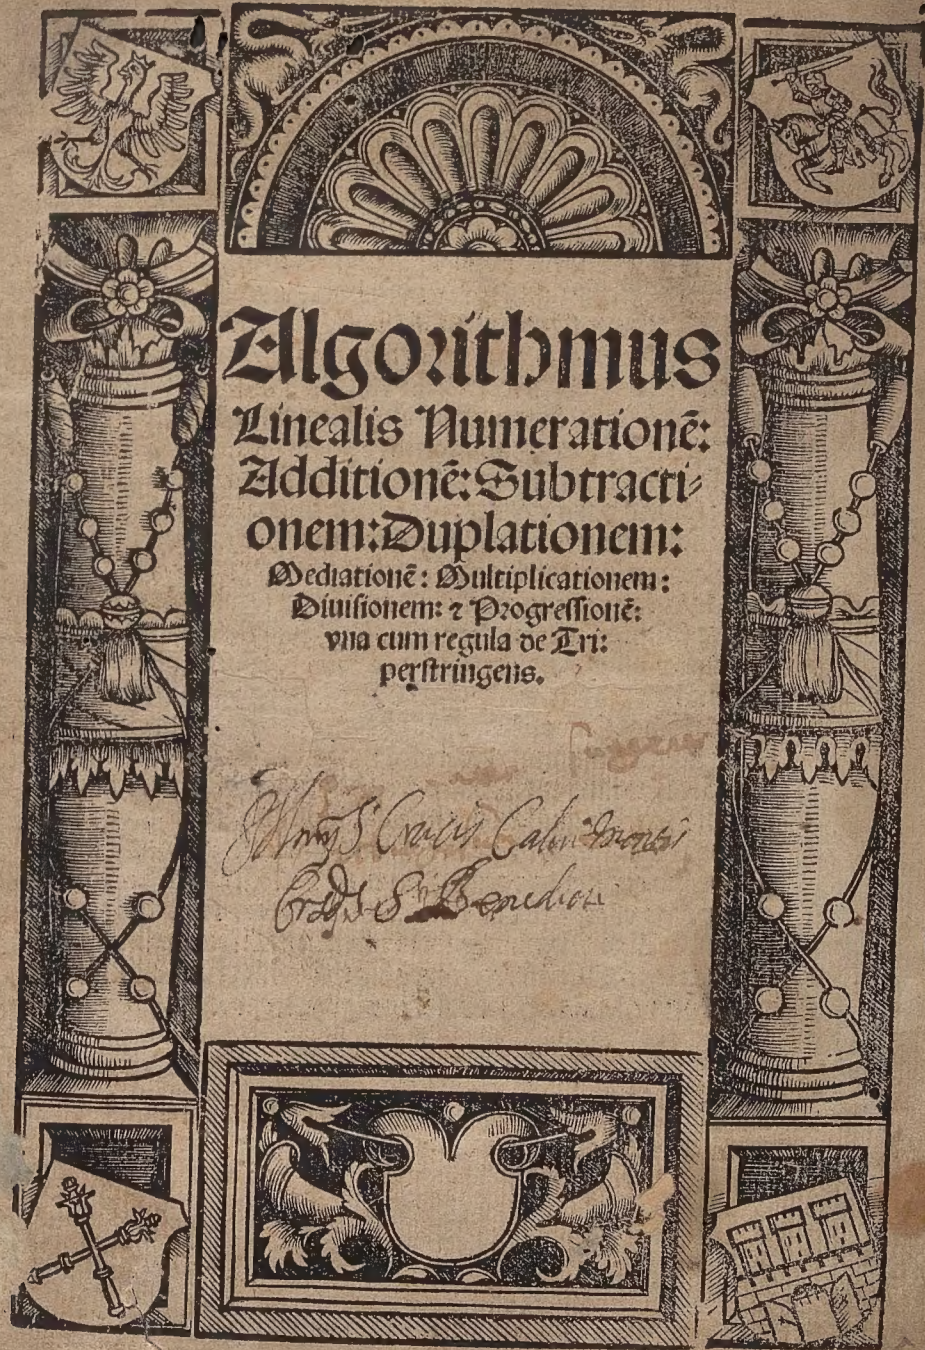 Algorithmus
Linealis Numerationē:
Additionē: Subtracti⸗
onem: Duplationem:
Mediationē: Multiplicationem:
Diuisionem: ⁊ Progressionē:
vna cum regula de Tri:
perstringens.
Crucis
Benedicti